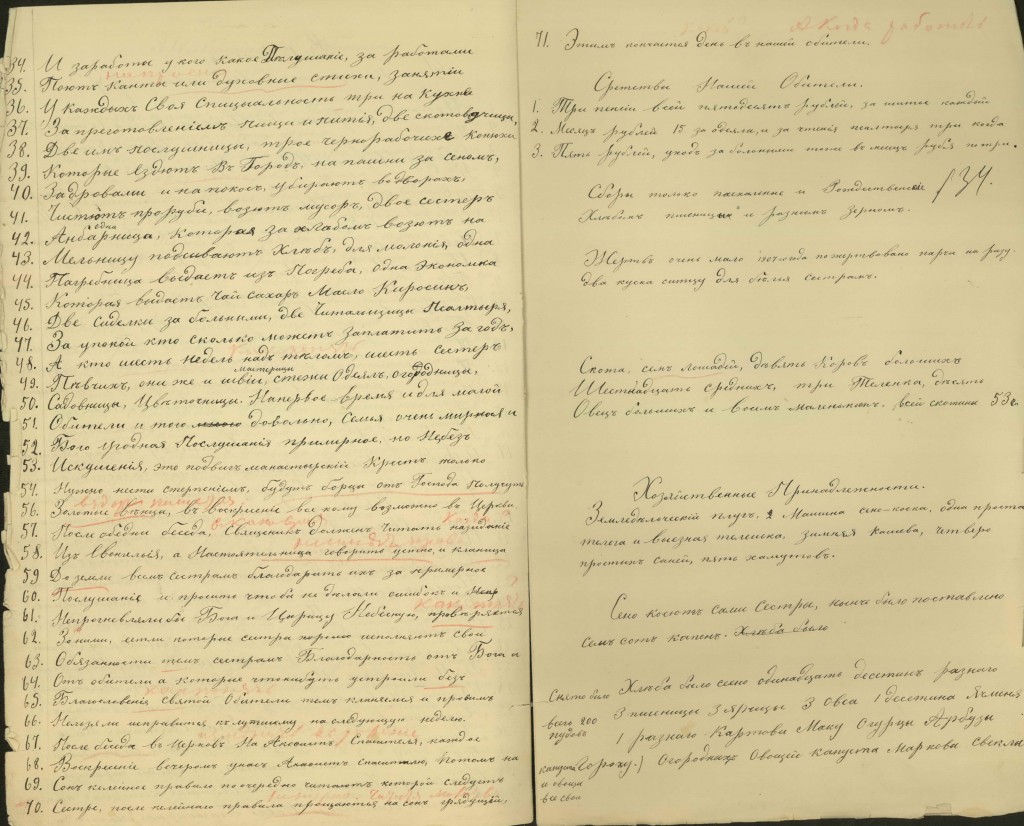 34. И заработы у кого какое Пслушаніе, за работами
35. Поютъ канты или духовные стихи, занятіи
36. У каждыхъ Своя Специальность три на Кухни
37. За преготовленіемъ пищи и питія, две скотовдчица,
38. Две имъ послушницы, трое чернорабочихе конюхи
39. Которые ездютъ Въ Городъ, на пашни за сеномъ,
40. За дровами и на покосе, убираютъ водворахъ,
41. Чистютъ проруби, возютъ мусоръ, двое сестеръ
42. Анбарница, одна которая за хлабомъ возютъ на
43. Мельницу подсиваютъ Хлѣбъ, для молонія, одна
44. Пагребница выдаетъ изъ Погреба, одна Экономка
45. Которая выдаетъ Чай сахаръ Масло Киросинъ,
46. Две Сиделки за больными, две Читальщицы Псалтыря,
47. За упокой кто сколько можетъ Заплатить За годъ,
48. А кто шесть недель надъ тѣломъ, шесть сестеръ
49. Пѣвчихъ, они же и швіи, мастерицы стежки Одеялъ, огородница,
50. Садовница, Цвѣточница. Напервое время и для малой
51. Обители и того много довольно, Семья очень мирная и
52. Бого угодная Послушанія примерное, но Небезъ
53. Искушенія, это подвигъ манастырскій Крестъ только
54. Нужно нести стерпеніемъ, будутъ борца отъ Господа Получутъ
56. Золотые вѣнцы, въ воскресніе все кому возможно въ Церьви
57. После обедни беседа, Священикъ долженъ Читать назиданіе
58. Изъ Евонгилья, а Настоятельница говорить устно, и кланица
59 До земли всемъ сестрамъ благодарить ихъ за примерное
60. Послушаніе и просить чтобы не делали ошибокъ и
61. Непрогневляли бы Бога и Царицу Небесную,
62. За ними, если которые сестра хорошо исполняютъ свои
63. Обязанности темъ сестрамъ Благодарность отъ Бога и
64. Отъ обители а которые чтонибудь устроили безъ
65. Благословенія святой Обители темъ кланяемся и просимъ
66. Нельзя ли исправится къ лутшему на следующую неделю.
67. После беседа въ Церковъ На Акафистъ Спасителя, каждое
68. Воскресніе вечеромъ унасъ Акафистъ спасителю, потомъ на
69. Сонъ келейное правило поочередно читаютъ которой следуетъ
70. Сестре, после келейнаго правила прощаются на сонъ грядущій,
А Когда работы
71. Этимъ кончается дело въ нашей обители.
Сретства Нашей Обители.
1. Три пенсіи всей пятодесятъ рублей, за шитье каждой
2. Месяцъ рублей 15 за одеяла, и за чтенія псалтыря три когда
3. Пять рублей, уходъ за больными тоже въ месяцъ рубля потри.
Сборы только пасхальные и Рождественскіе
134.
Хлебныхъ пшеница и разнымъ Зерномъ.
Жертвъ очень мало пожертвовано парча на ризу
два куска ситцу для бѣлья сестрамъ.
Скота, семъ Лошадей, дѣвять Коровъ большихъ
Шестнадцать средныхъ, три Теленка, десять
Овецъ большихъ и восемъ маленькихъ. всей скотины 53 г.
Хозяйственные Принадлежности.
Земледельческій плугъ, 2 Машина сено-коска, одна проста
телега и выезная тележка, зимняя кашева, четыро
простыхъ саней, пять хамутовъ.
Сено косютъ сами Сестры, нонче было поставлено
Семъ сотъ капенъ. Хлѣба было
Снято было Хлѣба было сено одинадцать десетинъ разнаго
всего 200 3 пшеницы 3 Ярицы 3 Овса 1 десетина Ячменя
пудовъ 1 разнаго Картовы Маку Огурцы Арбузы
капуста Гороху.) Огородныхъ Овощій капуста Маркова Свекла
и овощи
все свои